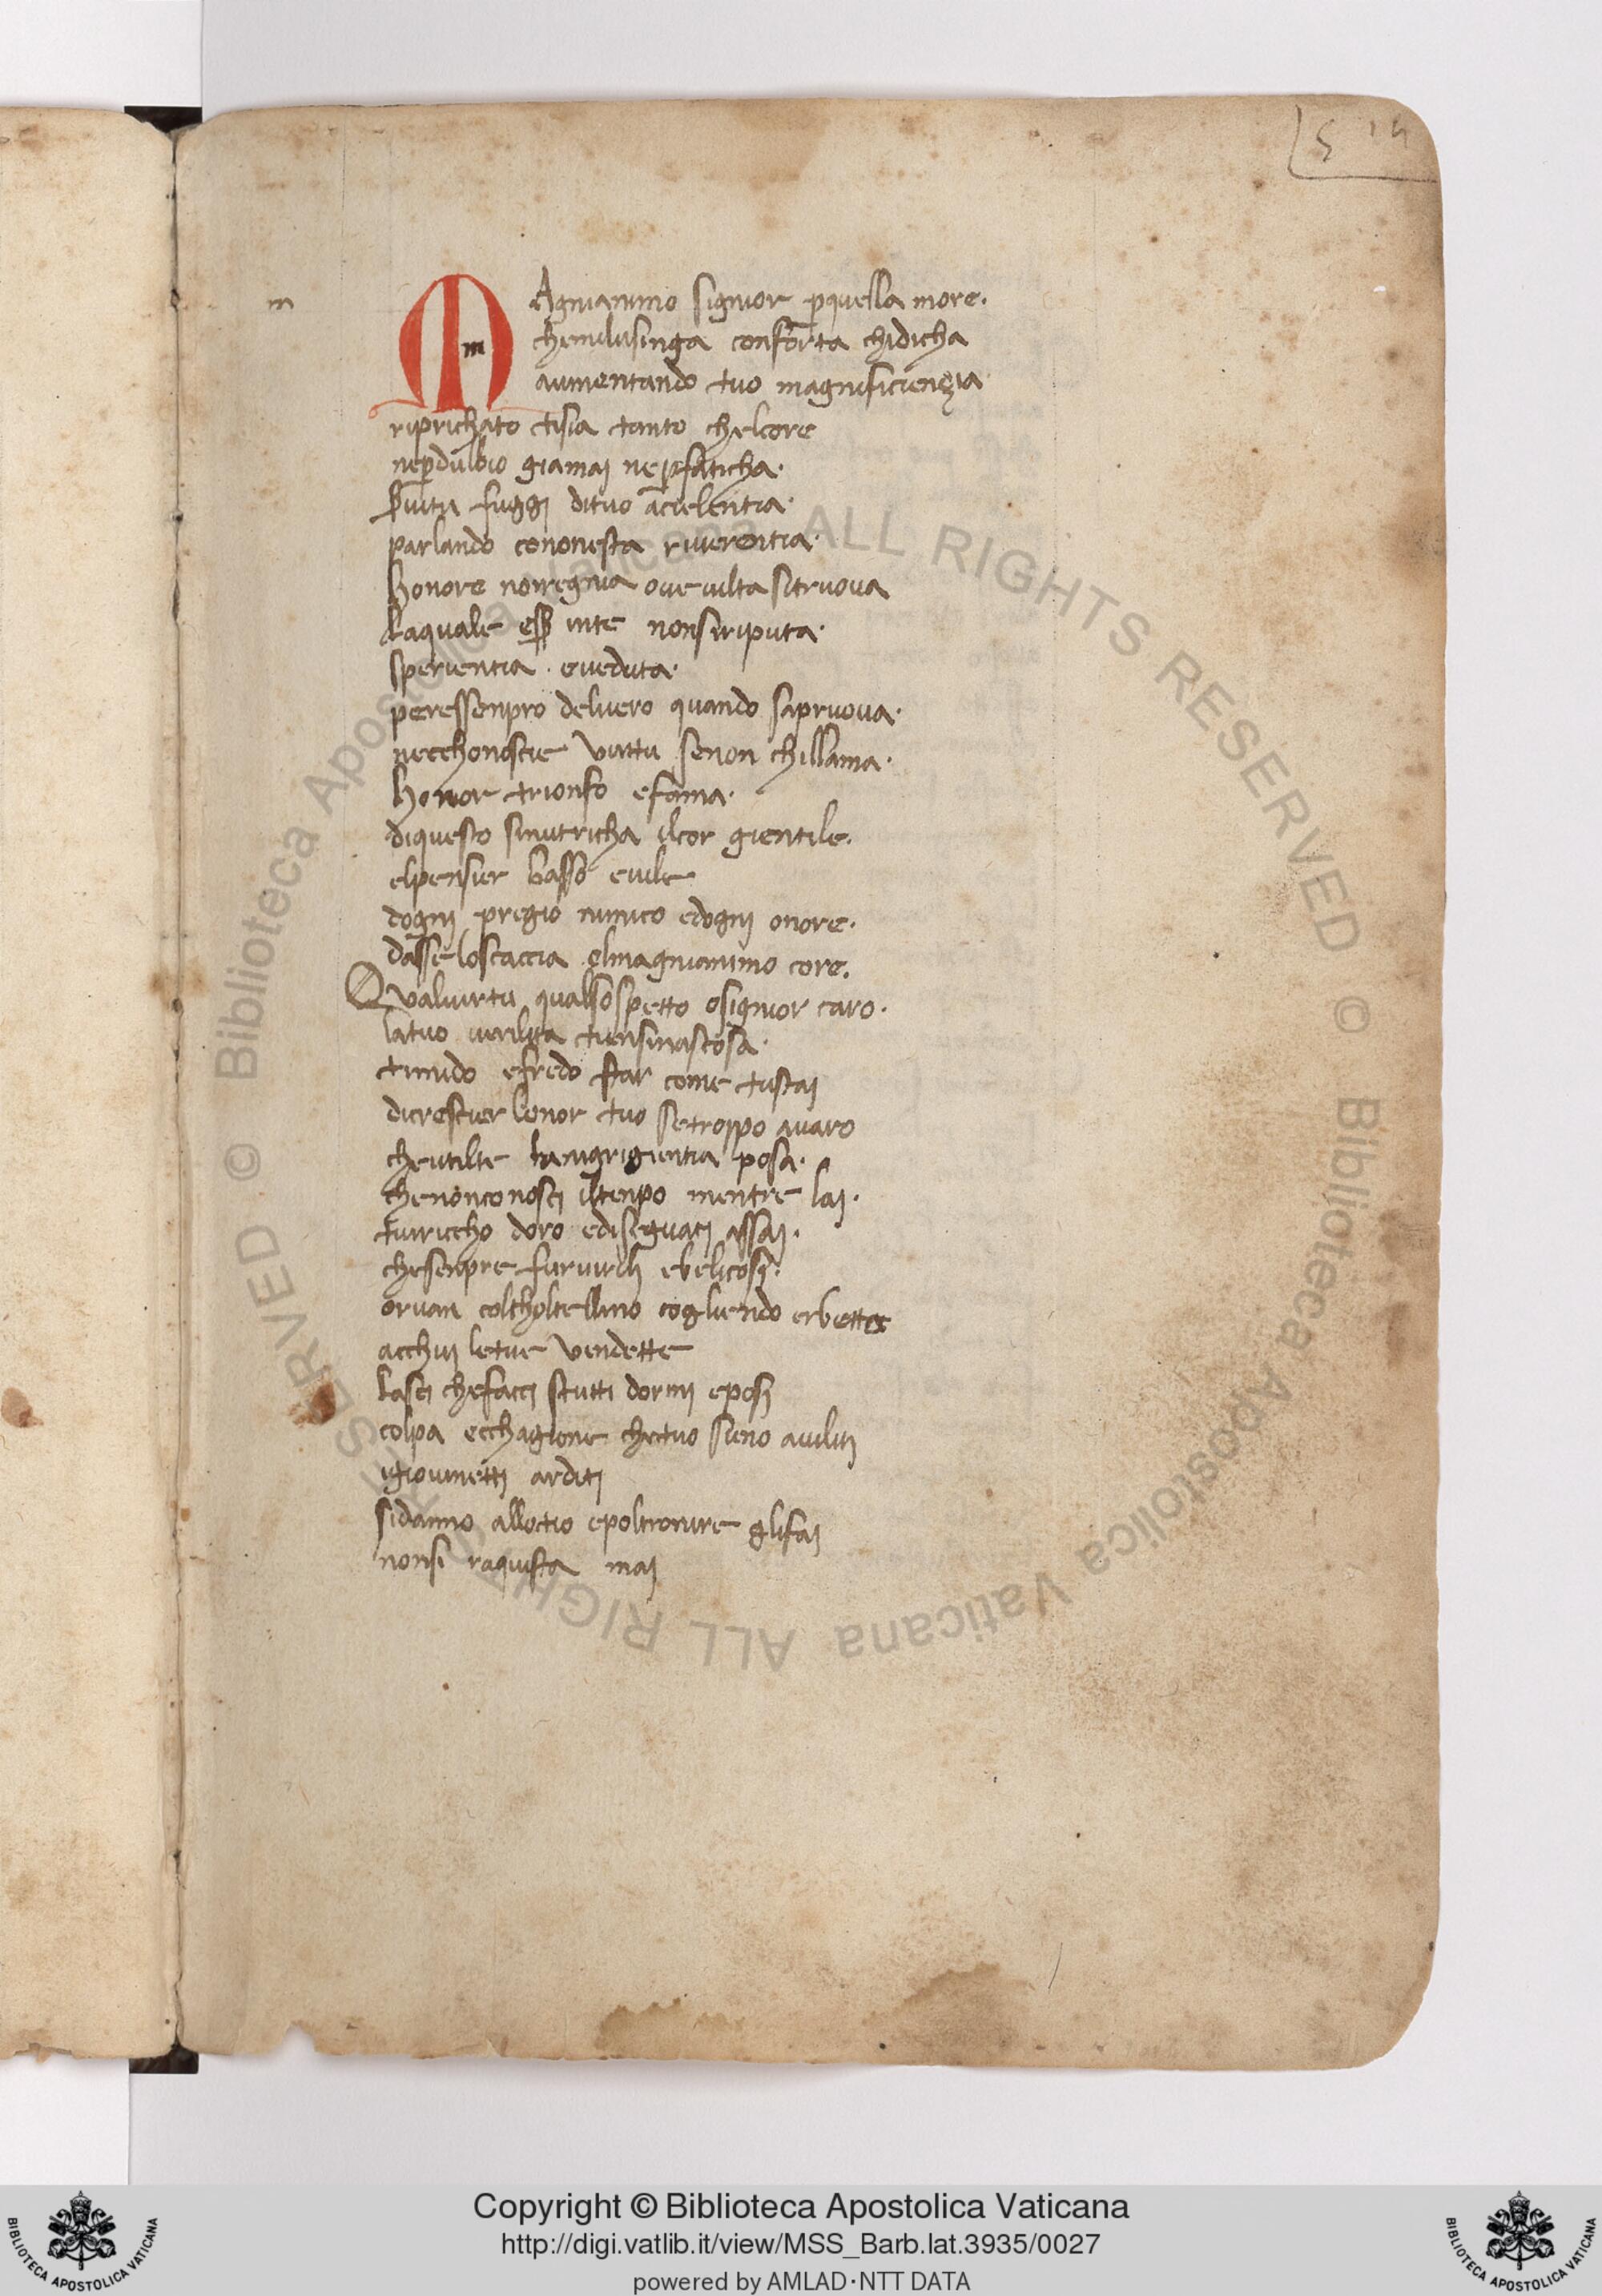 514
m
MAgnianimo signior pquella more.
m
chemilusinga conforta chidicha
aumentando tuo magnificiençia
riprichato tisia tanto chelcore
nepdubio giamai nepfaticha.
fuggi dituo
parlando cononesta riverentia.
honore nonregnia ove vilta sitruova
laquale inte nonsiriputa.
sperientia. eveduta.
peressenpro delvero quando sapruova.
necchonoscie virtu senon chillama.
honor trionfo efama.
diquesto sinutricha ilcor gientile.
elpensier basso evile
dogni pregio nimico edogni onore.
dasse loscaccia elmagnianimo core.
Qvalvirtu qualsospetto osignior caro.
latuo verilita tiensinascosa.
timido efredo star come tustai
dicrescier lonor tuo setroppo avaro
cheutilte posa.
chenonconosci iltenpo mentre lai.
turiccho doro ediseguaci assai.
chesenpre furvirili ebelicosi.
orvan colcholtellino cogliendo erbette
acchui letue vendette
lasci chefacci stutti dormi eposi
colpa ecchagione chetuo sieno aviliti
igiovinetti arditi
sidanno allotio epoltronire glifai
nonsi raquista mai
Biblioteca Apostolica Vaticana ALL RIGHTS RESERVED © Biblioteca Apostolica Vaticana ALL RIGHTS RESERVED ©
Copyright © Biblioteca Apostolica Vaticana
http://digi.vatlib.it/view/MSS_Barb.lat.3935/0027
powered by AMLAD·NTT DATA
BIBLIOTECA APOSTOLICA VATICANA
BIBLIOTECA APOSTOLICA VATICANA